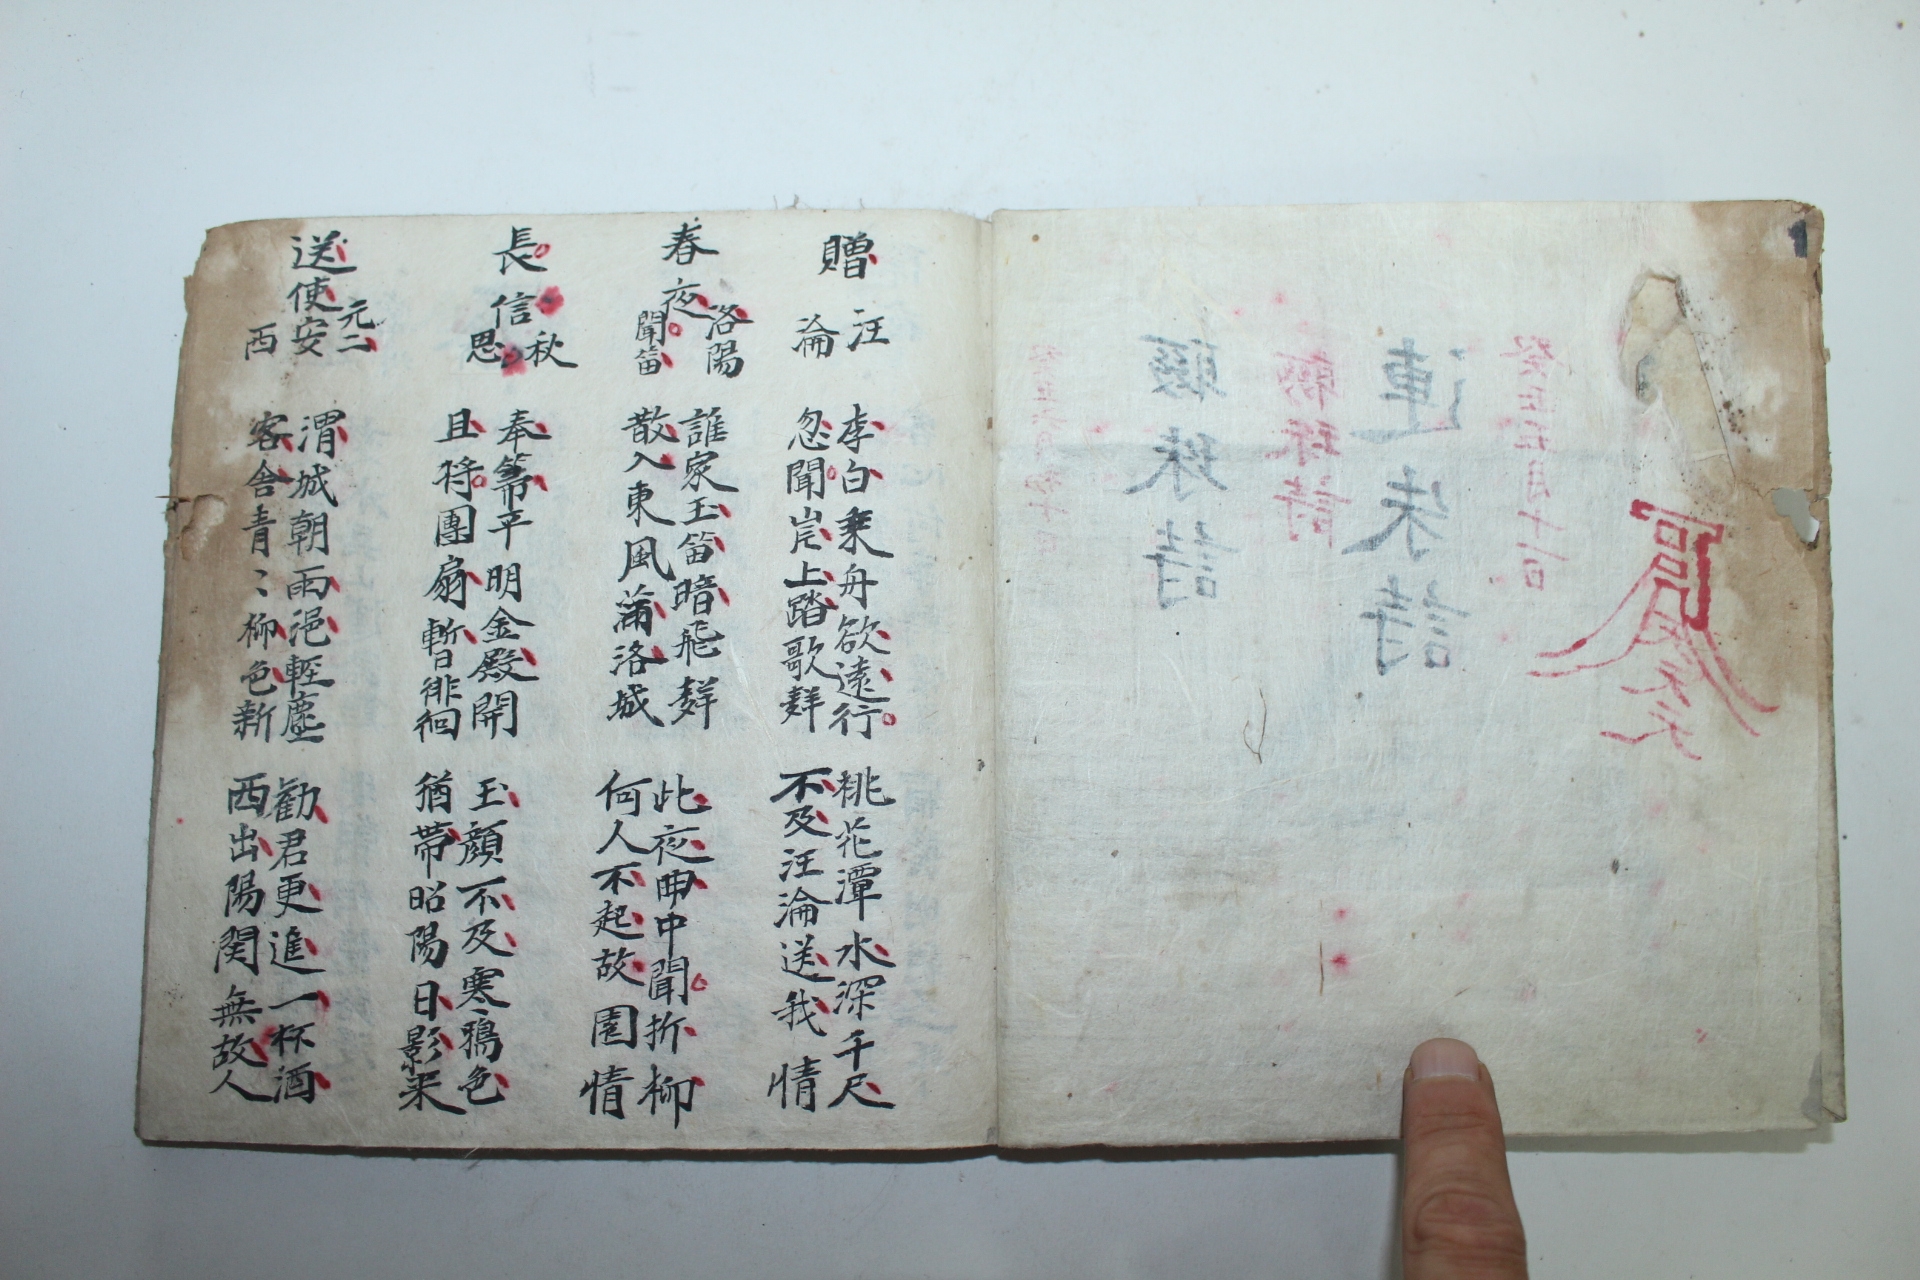 癸丑五月十一日
連朱詩
聯珠詩
聯珠詩
贈汪淪
李白乘舟欲遠行
忽聞岸上踏歌聲
桃花潭水深千尺
不及汪淪送我情
春夜洛陽聞笛
誰家玉笛暗飛聲
散入東風滿洛城
此夜曲中聞折柳
何人不起故園情
長信秋思
奉箒平明金殿開
且將團扇暫徘徊
玉顔不及寒鴉色
猶帶昭陽日影来
送元二使安西
渭城朝雨浥輕塵
客舍青〻柳色新
勸君更進一杯酒
西出陽関無故人